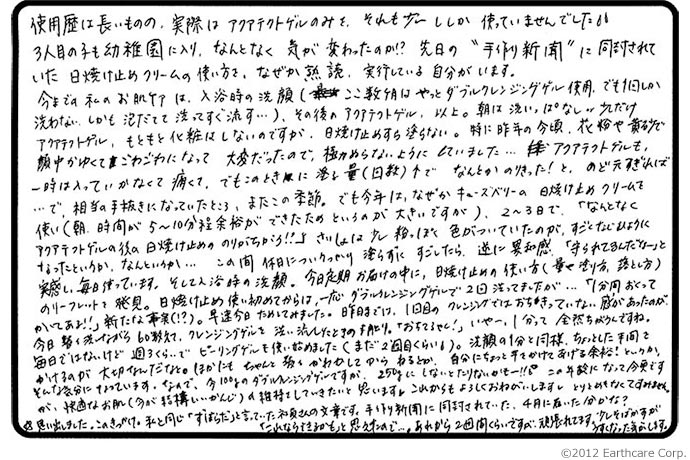 使用歴は長いものの、実際はアクアテクトゲルのみを、それも少ししか使っていませんでした
3人目の子も幼稚園に入り、なんとなく気が変わったのか!? 先日の"手作り新聞"に同封されて
いた日焼け止めクリームの使い方を、なぜか熟読、実行している自分がいます。
今までの私のお肌ケアは、入浴時の洗顔(ここ数ヶ月はやっとダブルクレンジングゲル使用、でも1回しか
洗わない、しかも泡だてて洗ってすぐ流す…)、その後のアクアテクトゲル、以上。朝は洗いっぱなし、少しだけ
アクアテクトゲル、もともと化粧はしないのですが、日焼け止めすら塗らない。特に昨年の今頃、花粉や黄砂で
顔中がかゆくてごわごわになって大変だったので、極力ぬらないようにしていました…アクアテクトゲルも、
一時は入っていかなくて痛くて、でもこのときに塗る量(回数)↑でなんとかのりきった!と、のど元すぎれば
…で、相当の手抜きになっていたところ、またこの季節。でも今年は、なぜかキューズベリーの日焼け止めクリームを
使い(朝、時間が5〜10分程余裕ができたためというのが大きいですが)、2〜3日で、「なんとなく
アクアテクトゲルの後の日焼け止めののりがちがう!!」さいしょは少し粉っぽく色がついていたのが、すごくなじむように
なったというか、なんというか…この間休日についうっかり塗らずにすごしたら、逆に異和感、「守られてるんだなーと
実感し、毎日使っています。そして入浴時の洗顔。今日定期お届けの中に、日焼け止めの使い方(量や塗り方、落とし方)
のリーフレットを発見。日焼け止め使い初めてからは、一応ダブルクレンジングゲルで2回洗ってましたが…「1分間おくって
かいてあるよ!!」新たな事実(!?)。早速今日ためしてみました。昨日までは、1回目のクレンジングではおちきっていない感があったが、
今日軽く洗いながら60数えて、クレンジングゲルを洗い流したときの手触り。「おちてるやん!」いやー、1分って全然ちがうんですね。
毎日ではないけど週3くらいでピーリングゲルも使い始めました(まだ2週目くらい)。洗顔の1分と同様、ちょっとした手間を
かけるのが大切なんだなと。ほかにもちゃんと髪をかわかしてからねるとか、自分にちょっと手をかけてあげる余裕!というか、
そんな気分になっています。なんで、今100gのダブルクレンジングゲルですが、250gにしないとたりないかもー!! この年齢になって今更です
が、快適なお肌(今が結構いいかんじ)を維持していきたいと思います。これからもよろしくおねがいします。とりとめなくてすみません。
思い出しました。このきっかけ。私と同じ「ずぼらだ」と言っていた社員さんの文章です。手作り新聞に同封されていた、4月に届いた分かな?
「これならできるかも」と思えたので…。あれから2週間くらいですが、頑張れてます。少しそばかすが
うすくなった気がします。
©2012 Earthcare Corp.